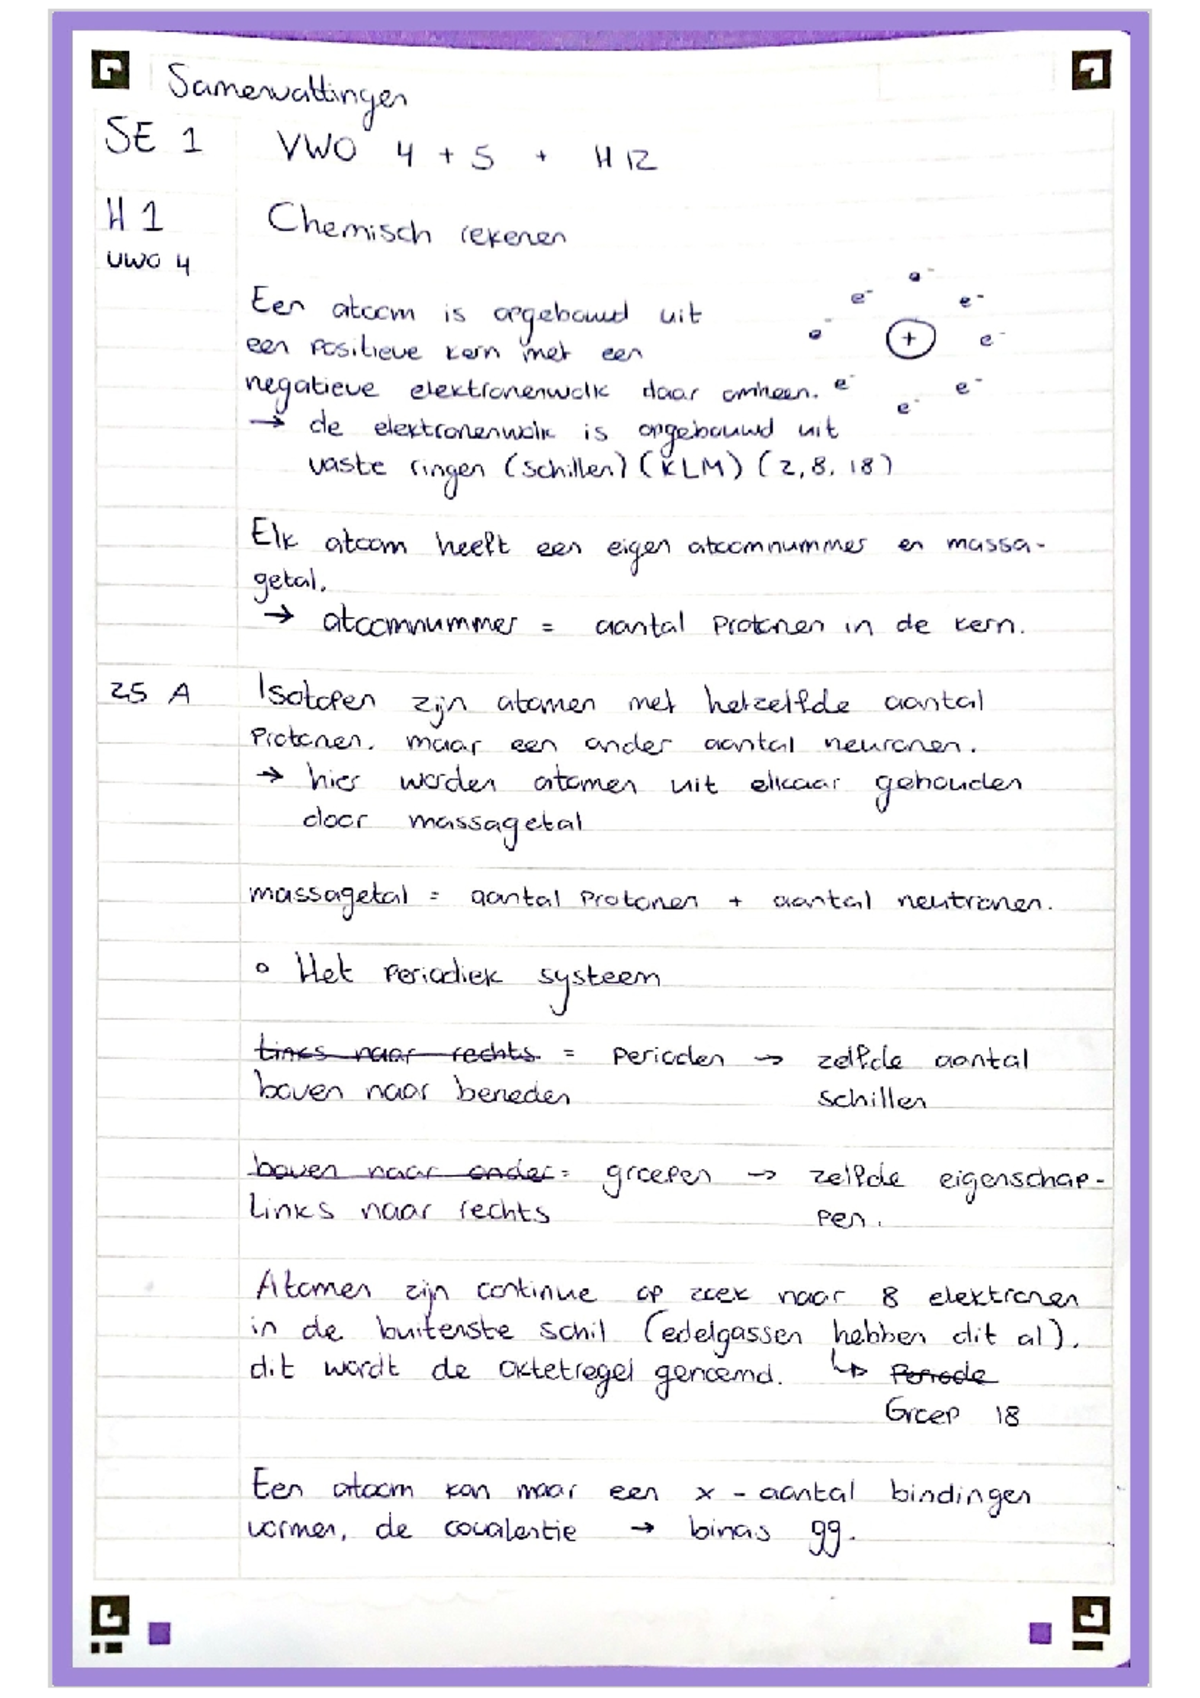 Samenvattingen
SE 1 VWO 4 + 5 + H 12
H 1 Chemisch rekenen
VWO 4
Een atoom is opgebouwd uit
een positieve kern met een
negatieve elektronenwolk daar omheen.
e⁻ e⁻ e⁻ e⁻ + e⁻ e⁻ e⁻ e⁻
→ de elektronenwolk is opgebouwd uit
vaste ringen (schillen) (KLM) (2, 8, 18)
Elk atoom heeft een eigen atoomnummer en massa-
getal.
→ atoomnummer = aantal protonen in de kern.
25 A Isotopen zijn atomen met hetzelfde aantal
protonen, maar een ander aantal neuronen.
→ hier worden atomen uit elkaar gehouden
door massagetal
massagetal = aantal protonen + aantal neutronen.
○ Het periodiek systeem
Links naar rechts = perioden → zelfde aantal
boven naar beneden schillen
boven naar onder = groepen → zelfde eigenschap-
Links naar rechts pen.
Atomen zijn continue op zoek naar 8 elektronen
in de buitenste schil (edelgassen hebben dit al).
dit wordt de oktetregel genoemd. ↳ Periode
Groep 18
Een atoom kan maar een x - aantal bindingen
vormen, de covalentie → binas 99.